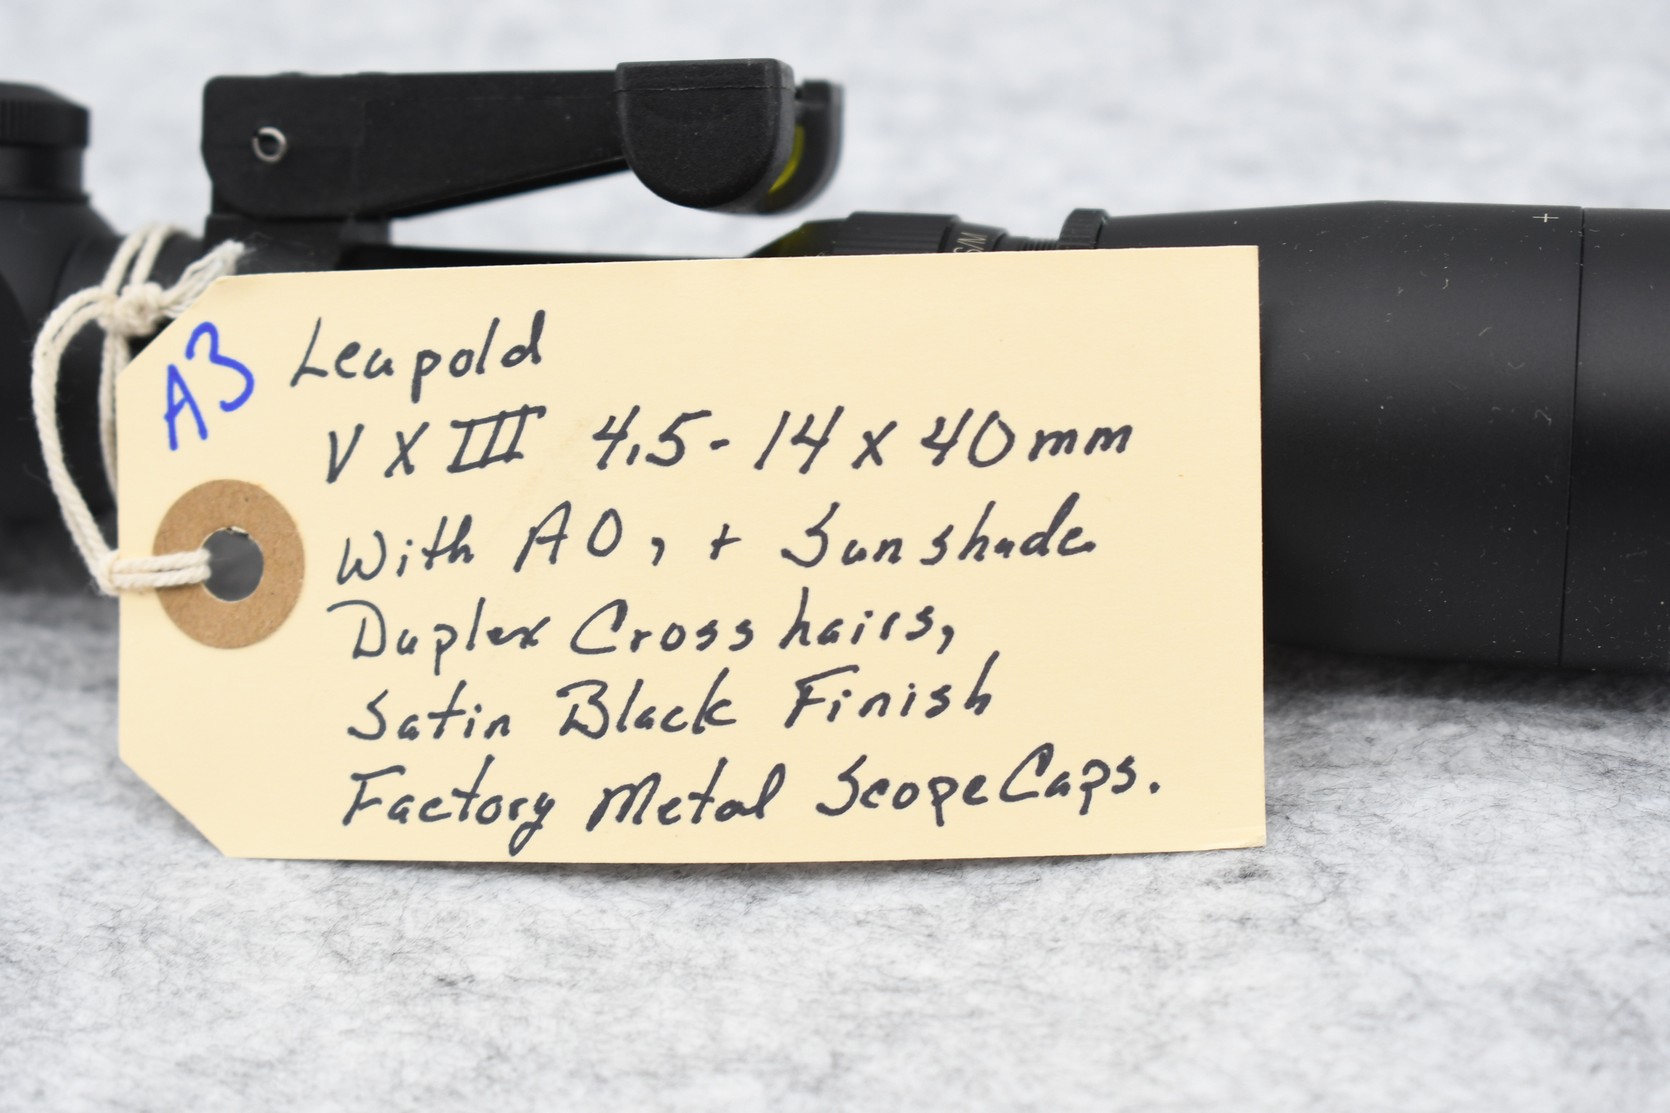 A3
Leupold
V X III 4.5-14 x 40mm
With AO, + Sunshade
Duplex Crosshairs,
Satin Black Finish
Factory Metal Scope Caps.